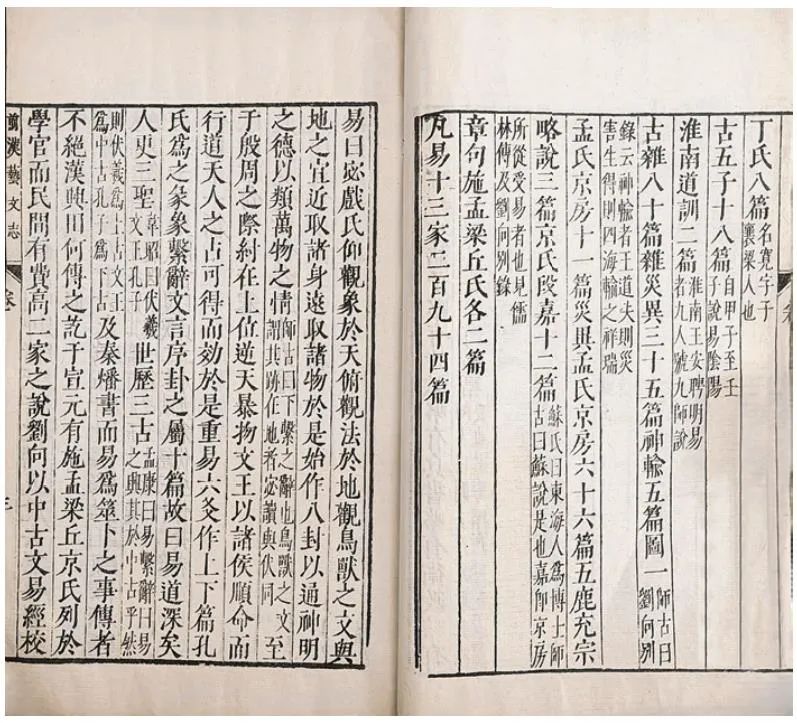 丁氏八篇名寬字子襄梁人也
古五子十八篇自甲子至壬子說易陰陽
淮南道訓二篇淮南王安聘明易者九人號九師說
古雜八十篇雜災異三十五篇神輸五篇圖一師古曰劉向別
錄云神輸者王道失則災害生得則四海輸之祥瑞
孟氏京房十一篇災異孟氏京房六十六篇五鹿充宗
略說三篇京氏段嘉十二篇蘇氏曰東海人爲博士師古曰蘇說是也嘉卽京房
所從受易者也見儒林傳及劉向別錄
章句施孟梁丘氏各二篇
凡易十三家二百九十四篇
易曰宓戲氏仰觀象於天俯觀法於地觀鳥獸之文與
地之宜近取諸身遠取諸物於是始作八卦以通神明
之德以類萬物之情師古曰下繫之辭也鳥獸之文謂其跡在地者宓讀與伏同至
于殷周之際紂在上位逆天暴物文王以諸侯順命而
行道天人之占可得而効於是重易六爻作上下篇孔
氏爲之彖象繫辭文言序卦之屬十篇故曰易道深矣
人更三聖韋昭曰伏羲文王孔子世歷三古孟康曰易繫辭曰易之興其於中古乎然
則伏羲爲上古文王爲中古孔子爲下古及秦燔書而易爲筮卜之事傳者
不絕漢興田何傳之訖于宣元有施孟梁丘京氏列於
學官而民間有費高二家之說劉向以中古文易經校
前漢藝文志 卷